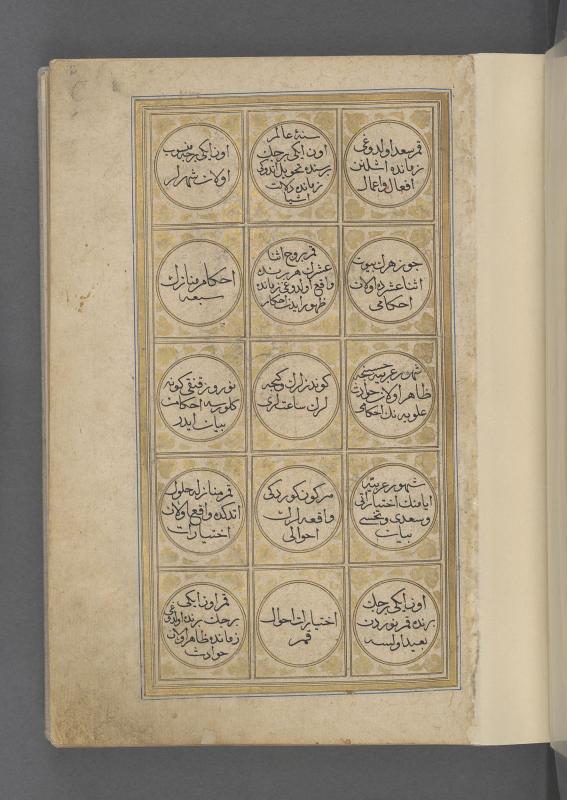 قمر سعد اولدوغی
زمانده اشلنن
افعال و اعمال
سنهٔ عالم
اون ایکی برجك
برنده تحویل اندوکی
زمانده دلالت
اشیا
اون ایکی برجه منسوب
اولان شهرلر
جوزهرك بیوت
اثنا عشرده اولان
احکامی
قمر بروج اثنا
عشرك هر برنده
واقع اولدوغی زمانده
ظهور ایدن احکام
احکام منازل
سبعه
شهور عربیه حسبنجه
ظاهر اولان حوادث
علویه نك احکامی
کوندزلرك کیجه
لرك ساعتلری
نوروز قنقی کونه
کلورسه احکامن
بیان ایدر
شهور عربیه
ایامنك اختیاراتی
و سعدی و نحسی
بیان
هر کون کوردکی
واقعه لرك
احوالی
قمر منازله حلول
اتدکده واقع اولان
اختیارات
اون ایکی برجك
برنده قمر نوردن
بعید اولسه
اختیارات احوال
قمر
قمر اون ایکی
برجك برنده اولدوغی
زمانده ظاهر اولان
حوادث